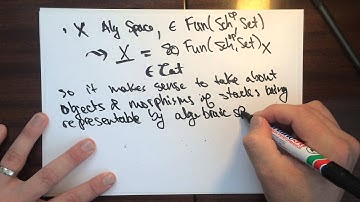 · X Alg Space, ∈ Fun(Sch^op, Set)
⇝ X = Fun(Sch^op, Set)_X
∈ Cat
so it makes sense to take about
objects & morphisms of stacks being
representable by algebraic sp